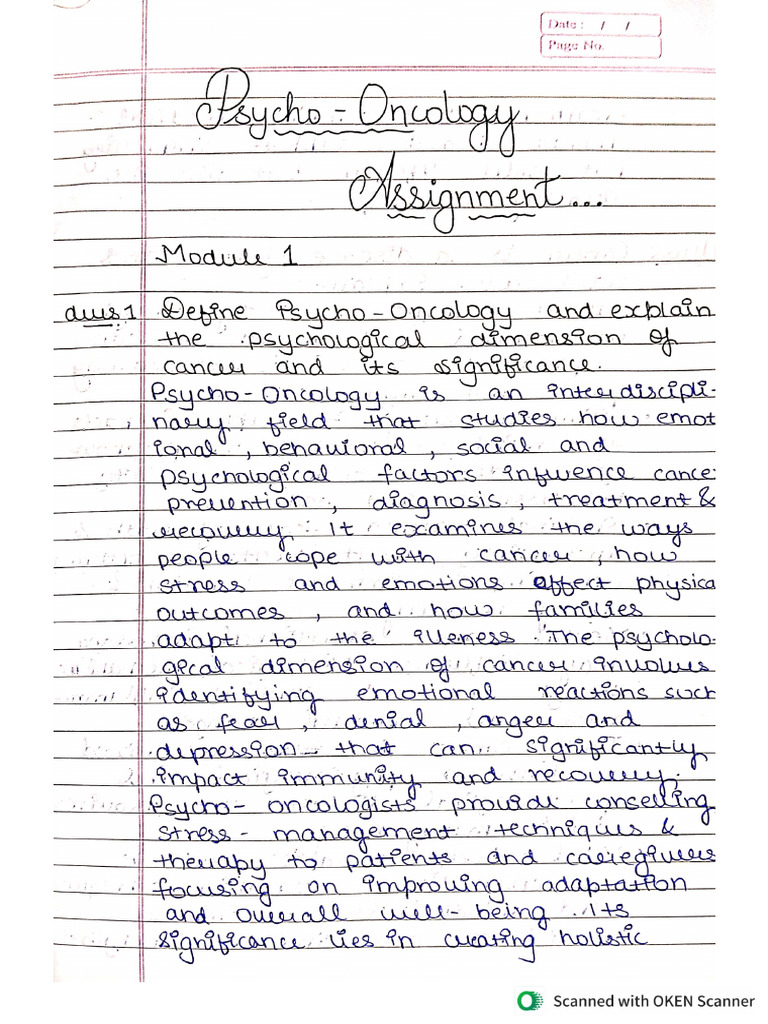 Date : / /
Page No.
Psycho-Oncology
Assignment...
Module 1
Ques 1 Define Psycho-Oncology and explain
the psychological dimension of
cancer and its significance.
Psycho-Oncology is an interdiscipli-
nary field that studies how emot
ional, behavioral, social and
psychological factors influence cance
prevention, diagnosis, treatment &
recovery. It examines the ways
people cope with cancer, how
stress and emotions affect physica
outcomes, and how families
adapt to the illeness. The psycholo-
gical dimension of cancer involves
identifying emotional reactions such
as fear, denial, anger and
depression - that can significantly
impact immunity and recovery.
Psycho-oncologists provide conselling
stress-management techniques &
therapy to patients and caregivers
focusing on improving adaptation
and overall well-being. Its
significance lies in creating holistic
Scanned with OKEN Scanner